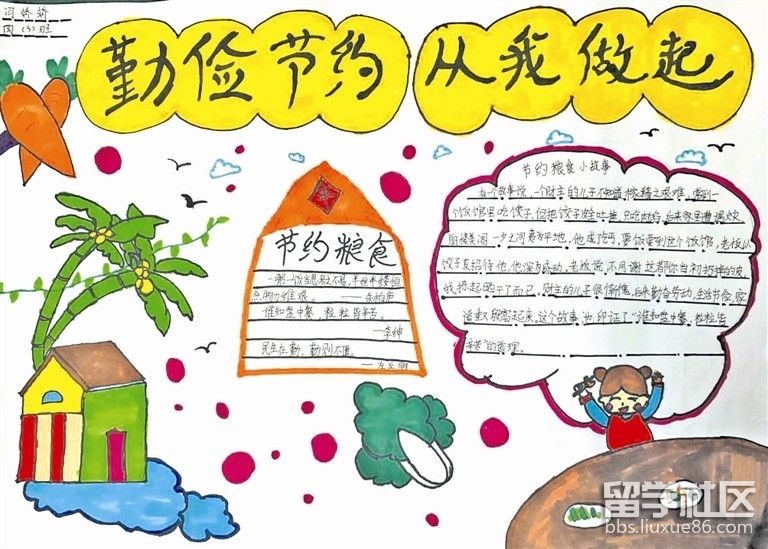 闫娇娇
四(3)班
勤俭节约 从我做起
节约粮食
一粥一饭当思来之不易,半丝半缕恒
念物力维艰。——朱柏庐
谁知盘中餐,粒粒皆辛苦。
——李绅
民生在勤,勤则不匮。
——左丘明
节约粮食小故事
有个故事说,一个财主的儿子不知道稼穑之艰难,常到一
饭馆里吃饺子,但把饺子皮吐掉,只吃
后来家里遭遇火灾,
一夕之间夷为平地,他成了乞丐,要饭要到这个饭馆,老板以
饺子皮招待他,他深为感动。老板说,不用谢,这都你当初扔掉的皮,
我捞起晒干了而已,财主的儿子很惭愧,后来勤奋劳动,生活节俭,家
道又殷富起来,这个故事也印证了“谁知盘中餐,粒粒皆
辛苦”的道理。
留学社区
bbs.liuxue86.com